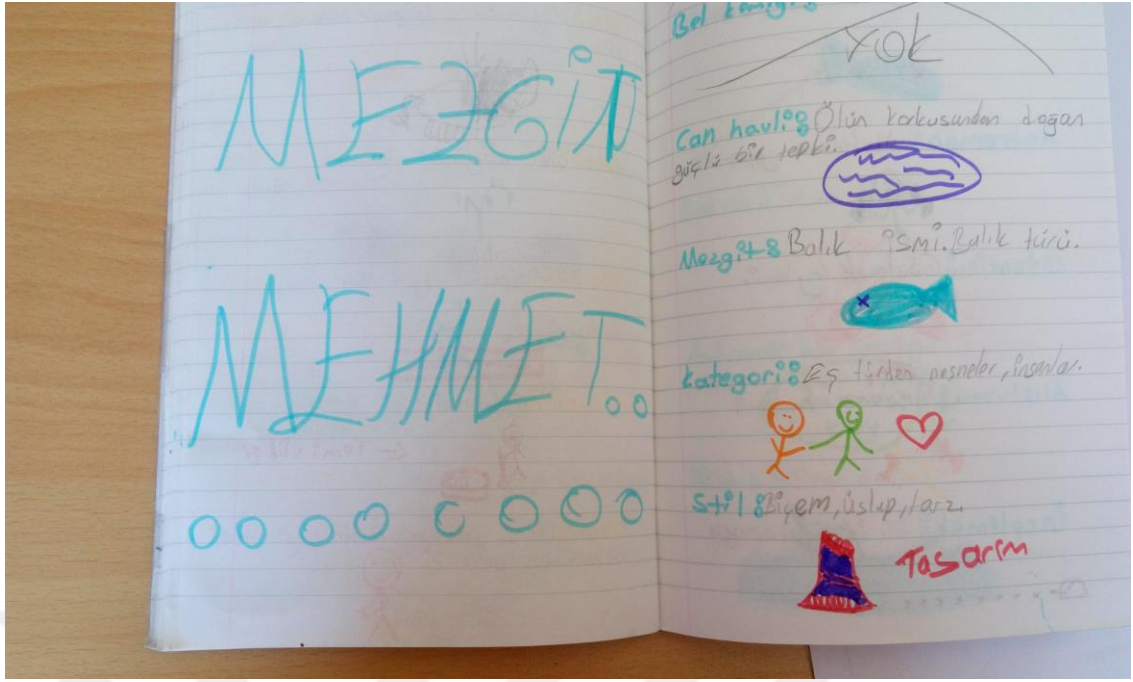 MEZGİN
MEHMET..
Bel kemiği:
YOK
Can havli: Ölün korkusundan doğan
güçlü bir tepki.
Mezgit: Balık ismi. Balık türü.
Kategori: Eş türden nesneler, insanlar.
Stil: Biçem, üslup, tarz.
Tasarım